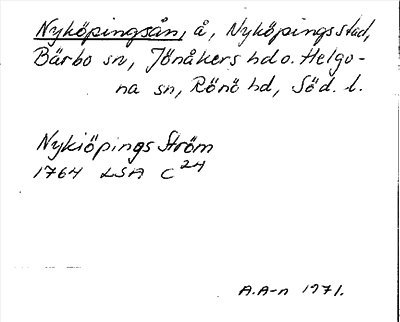 Nyköpingsån, å, Nyköpings stad,
Bärbo sn, Jönåkers hd o. Helgo-
na sn, Rönö hd, Söd. l.
Nykiöpings Ström
1764 LSA C24
A.A-n 1971.